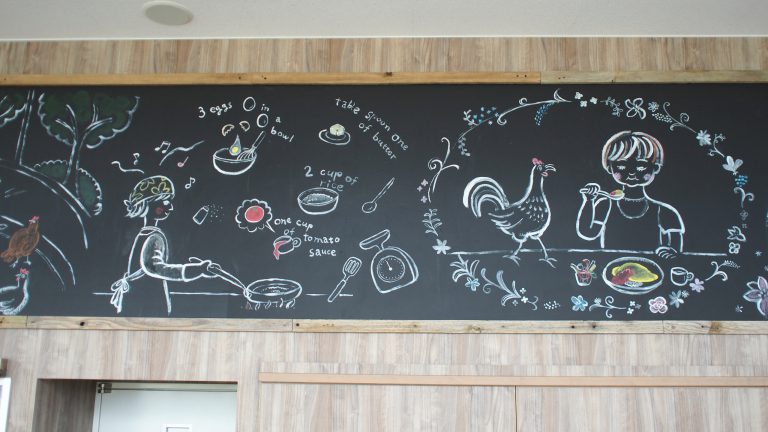 3 eggs in
a
bowl
take grown one
of butter
2 cup of
rice
one cup
of tomato
sauce